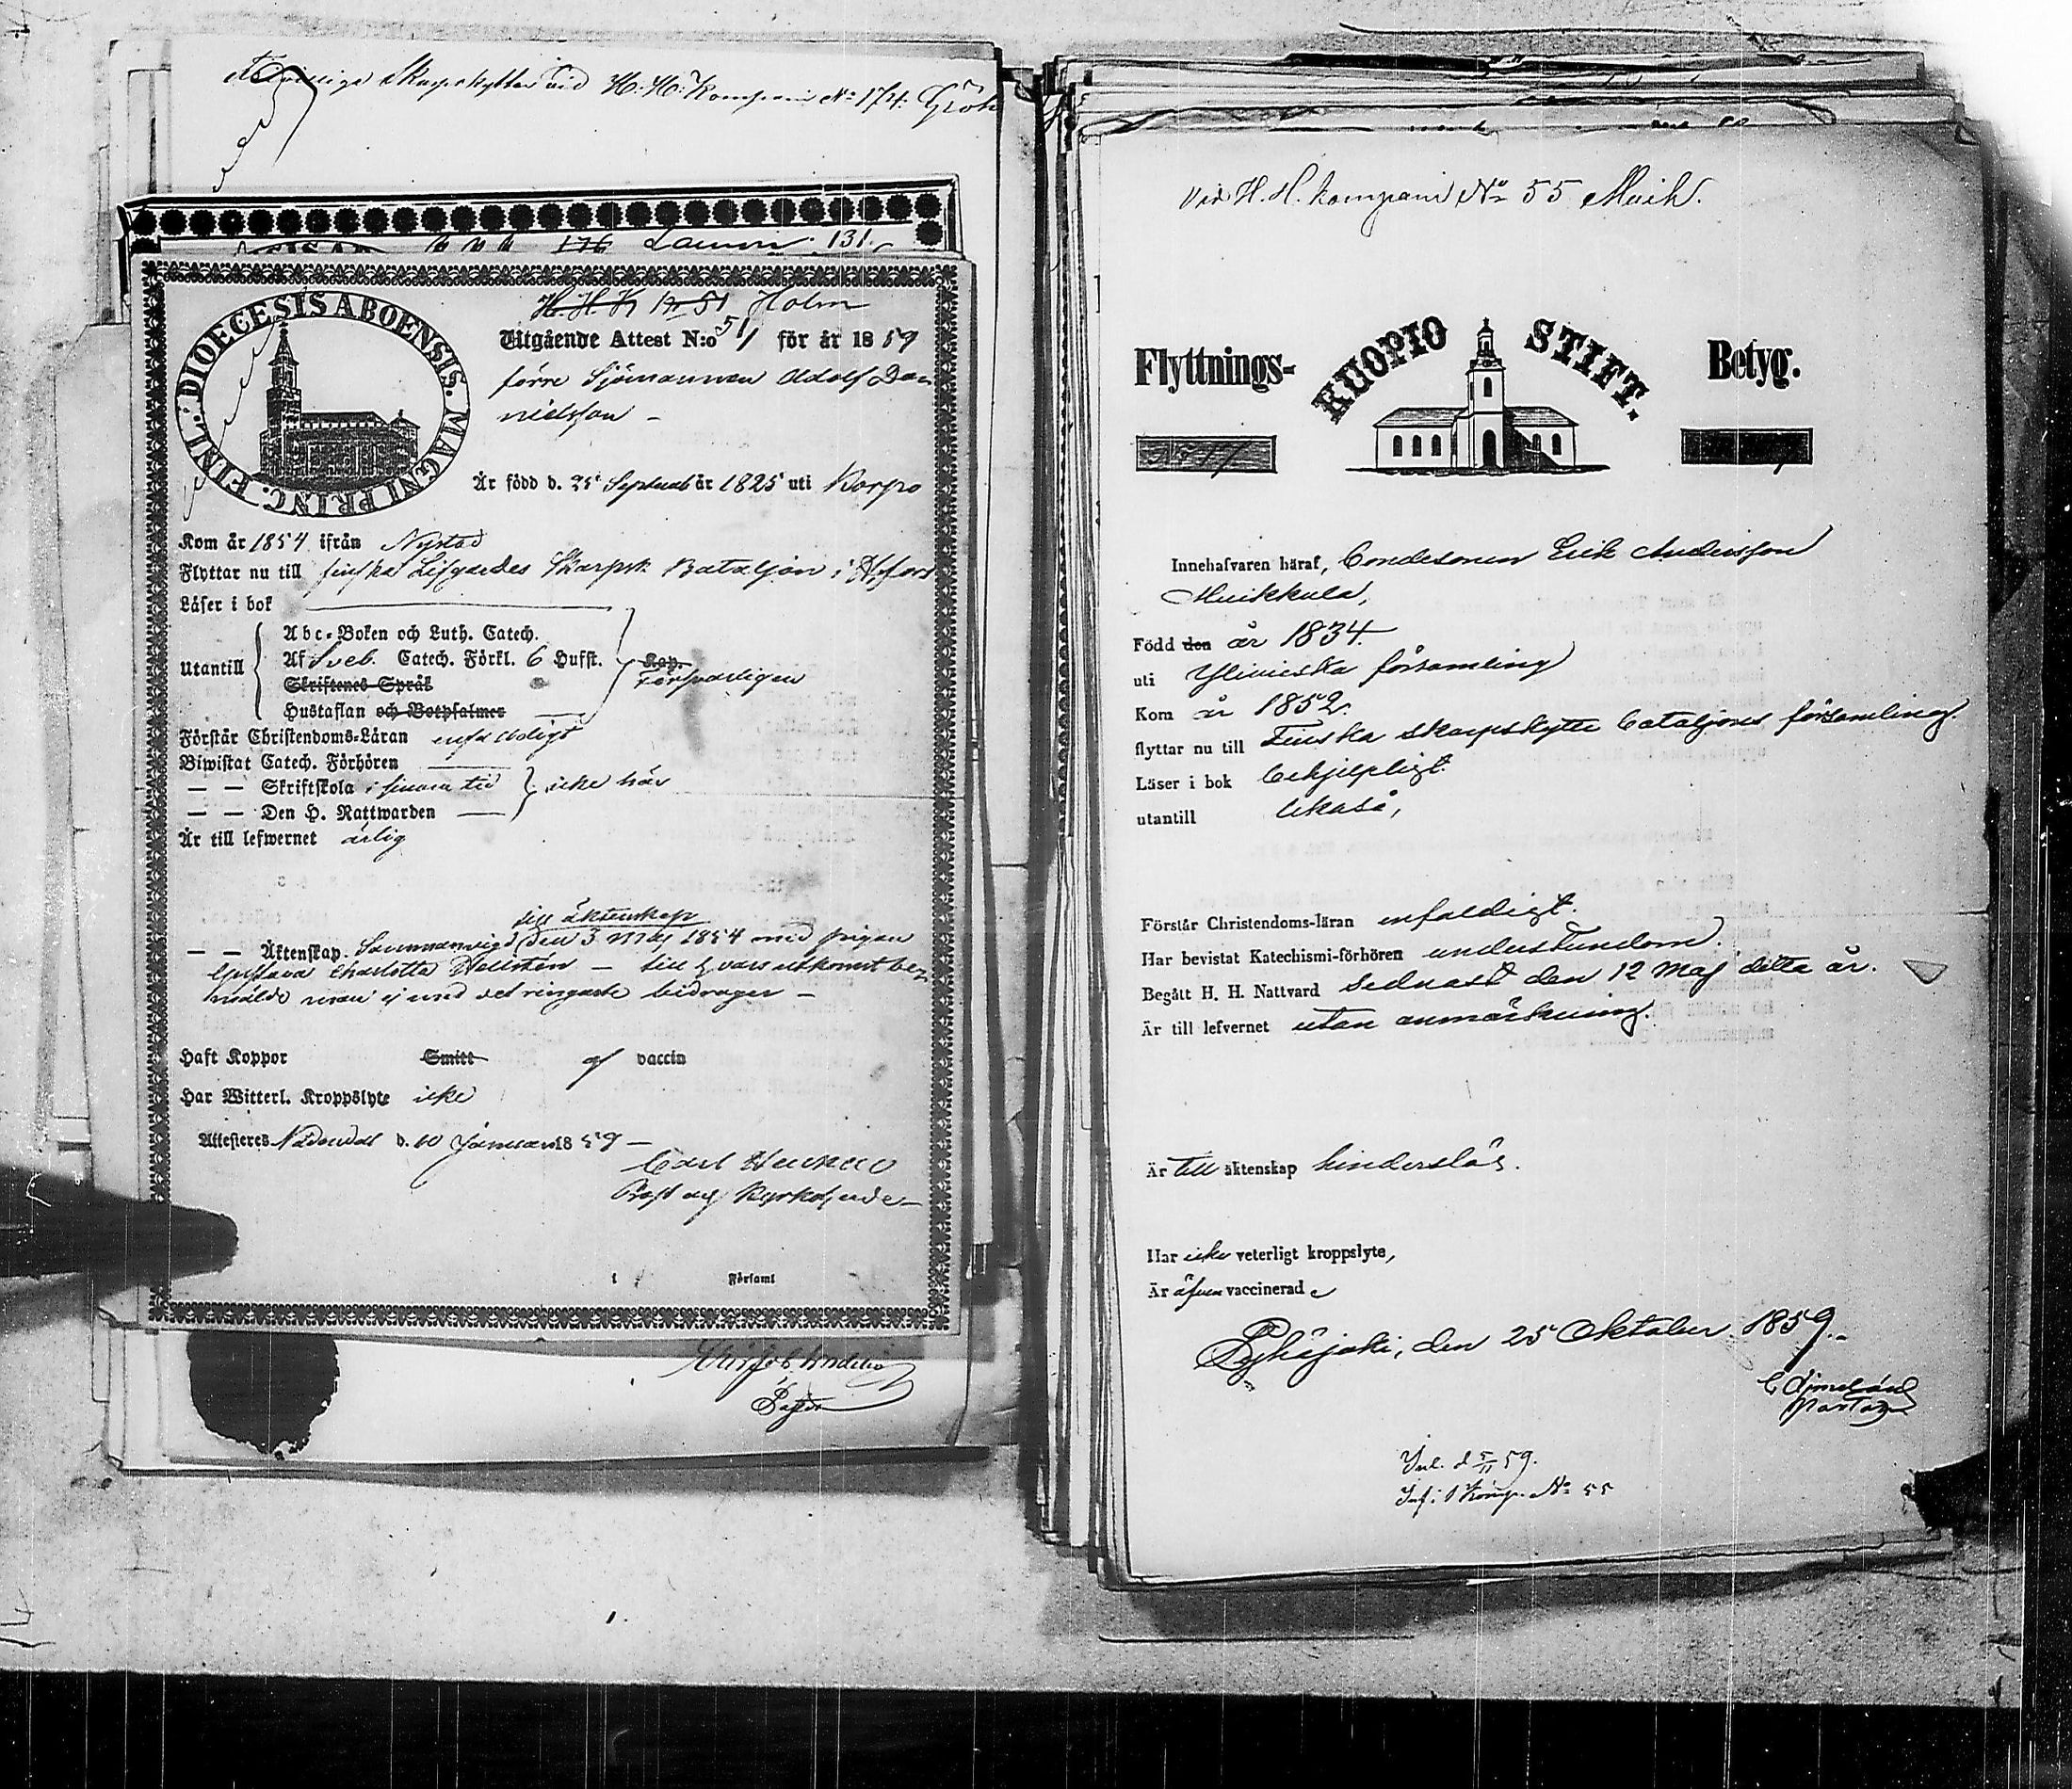 Skarpskytten vid H. H. Kompani No 174.
Lauren 131.
DIOECESIS ABOENSIS. MAGNI PRINC. FINL.
H. H. K No 51 Holm
Utgående Attest N:o 51 för år 1859
förre Sjömannen Adolf Da-
nielsson –
Är född d. 25 Septemb år 1825 uti Korpo
Kom år 1854 ifrån Nystad
Flyttar nu till finska Lifgardes Skarpsk Bataljon i H:fors
Läser i bok
Abc-Boken och Luth. Catech.
Utantill Af Sveb. Catech. Förkl. 6 Hufst. Kap.
försvarligen
Skriftenes Språk
Hustaflan och Botpsalmer
Förstår Christendoms-Läran enfaldigt
Biwistat Catech. Förhören
— — Skriftskola i sinom tid icke här
— — Den H. Nattwarden
Är till lefwernet ärlig
till äktenskap
— — Äktenskap. Sammanvigd den 3 Maj 1854 med pigan
Gustava Charlotta Hellstén – till hvars utkomst bej
mälde man ej med det ringaste bidrager –
Haft Koppor Smitt af vaccin
Har Witterl. Kroppslyte icke
Attesteres Nådendal d. 10 Januari 1859 –
Carl
Prost och Kyrkoherde –
i Församl
Pastor
Vid H. H. Kompani No 55 Muik.
Flyttnings- KUOPIO STIFT. Betyg.
No 17
Innehafvaren häraf, Bondesonen Erik Andersson
Muikkula,
Född den år 1834.
uti Ylivieska församling
Kom år 1852.
flyttar nu till Finska skarpskytte bataljons församling.
Läser i bok behjelpligt.
utantill likaså,
Förstår Christendoms-läran enfaldigt.
Har bevistat Katechismi-förhören understundom.
Begått H. H. Nattvard sednast den 12 Maj detta år.
Är till lefvernet utan anmärkning.
Är till äktenskap hinderslös.
Har icke veterligt kroppslyte,
Är äfven vaccinerad
Pyhäjoki, den 25 Oktober 1859.
Pastor
Inl. d 5/11 59.
Inf. i 1 Komp. No 55